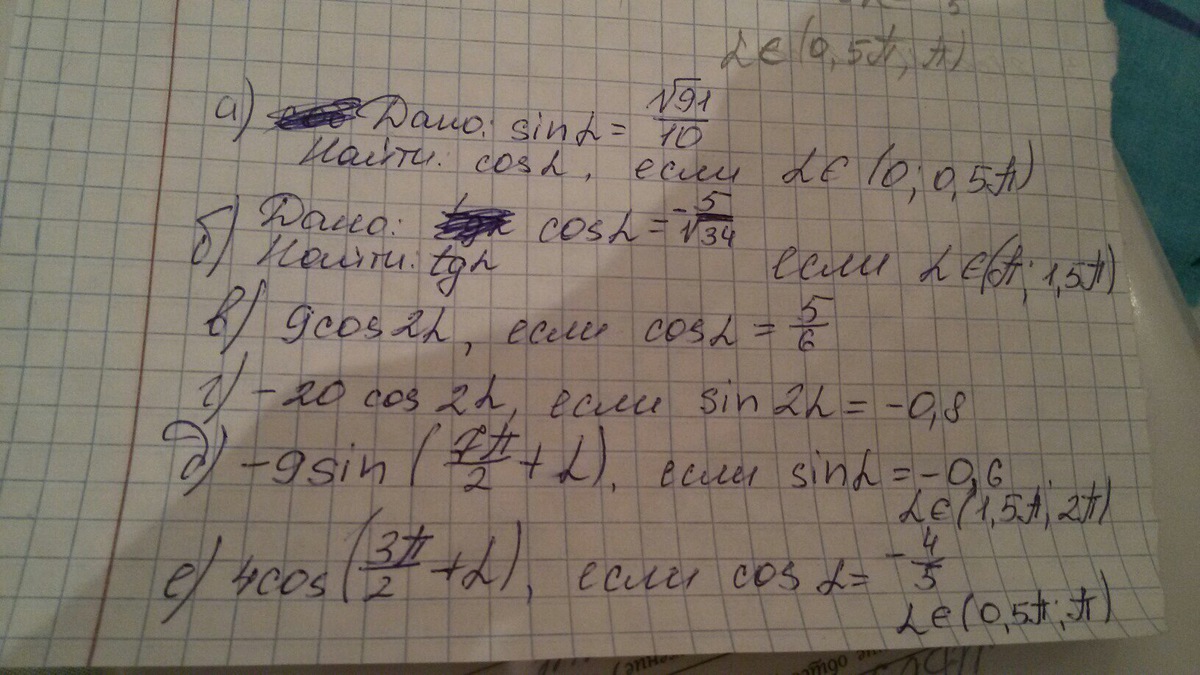 α ∈ (0,5π; π)
а) Дано: sin α = √91/10
Найти: cos α, если α ∈ (0; 0,5π)
б) Дано: cos α = -5/√34
Найти: tg α если α ∈ (π; 1,5π)
в) 9cos 2α, если cos α = 5/6
г) -20 cos 2α, если sin 2α = -0,8
д) -9 sin (7π/2 + α), если sin α = -0,6
α ∈ (1,5π; 2π)
е) 4cos (3π/2 + α), если cos α = -4/5
α ∈ (0,5π; π)